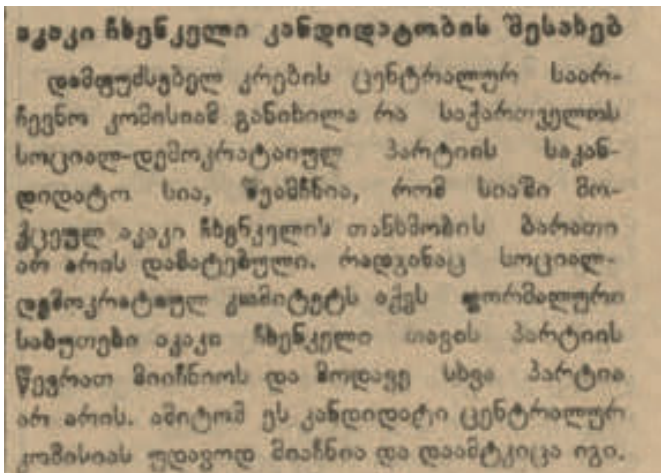 აკაკი ჩხენკელი კანდიდატობის შესახებ
დამფუძნებელ კრების ცენტრალურ საარ-
ჩევნო კომისიამ განიხილა რა საქართველოს
სოციალ-დემოკრატაიულ პარტიის საკან-
დიდატო სია, შეამჩნია, რომ სიაში მო-
ქცეულ აკაკი ჩხენკელის თანხმობის ბარათი
არ არის დამატებული. რადგანაც სოციალ-
დემოკრატიულ კომიტეტს აქვს ფორმალური
საბუთები აკაკი ჩხენკელი თავის პარტიის
წევრათ მიიჩნიოს და მოდავე სხვა პარტია
არ არის. ამიტომ ეს კანდიდატი ცენტრალურ
კომისიას უდავოდ მიაჩნია და დაამტკიცა იგი.